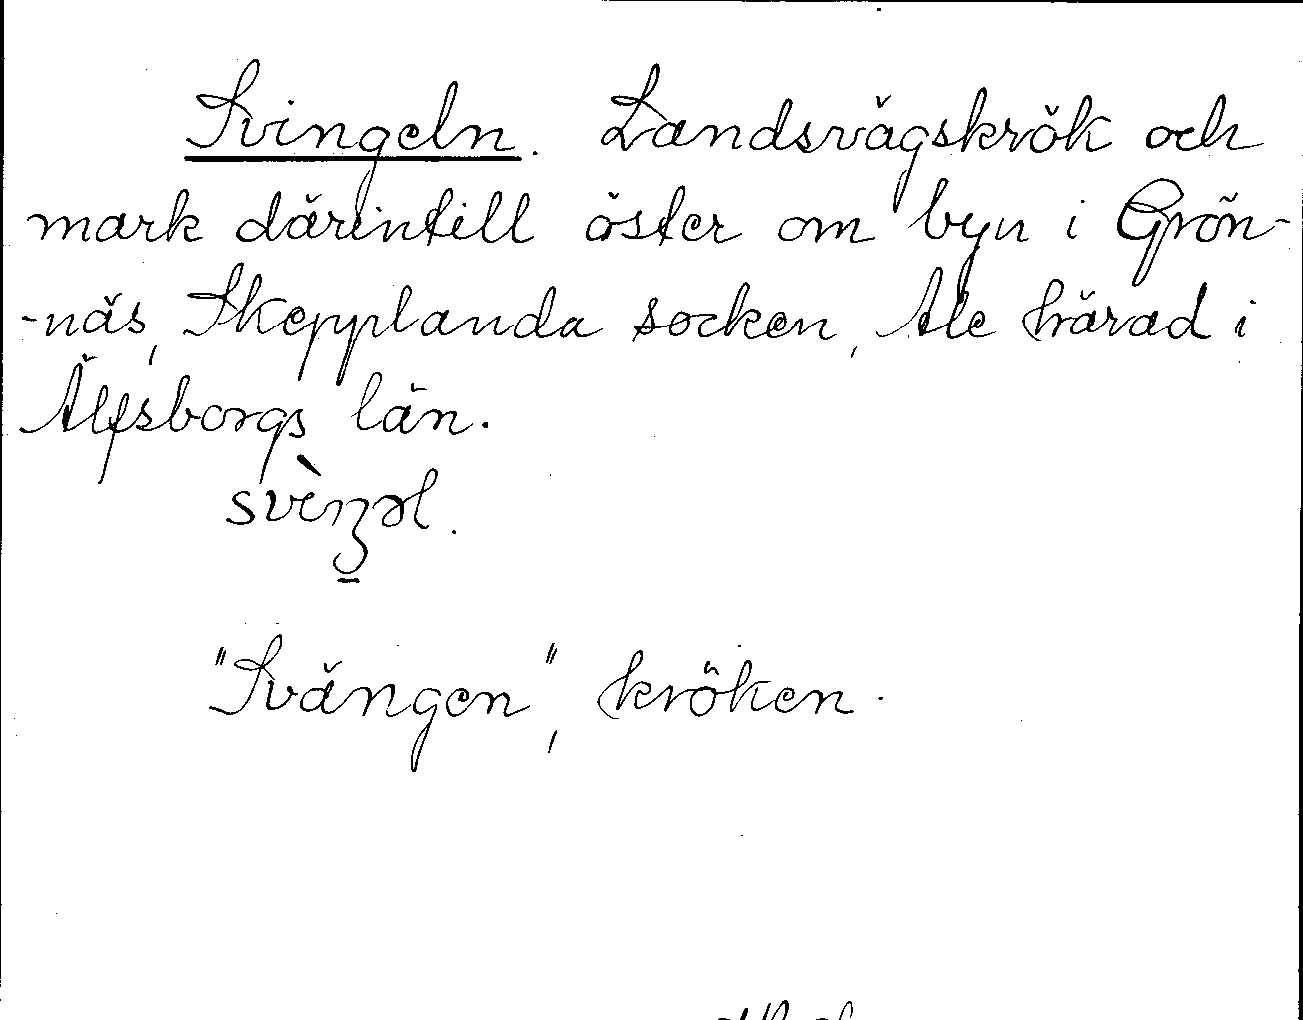 Svingeln. Landsvägskrök och
mark därintill öster om byn i Grön-
-näs, Skepplanda socken, Ale härad i
Älfsborgs län.
svìŋəl.
"Svängen", kröken.